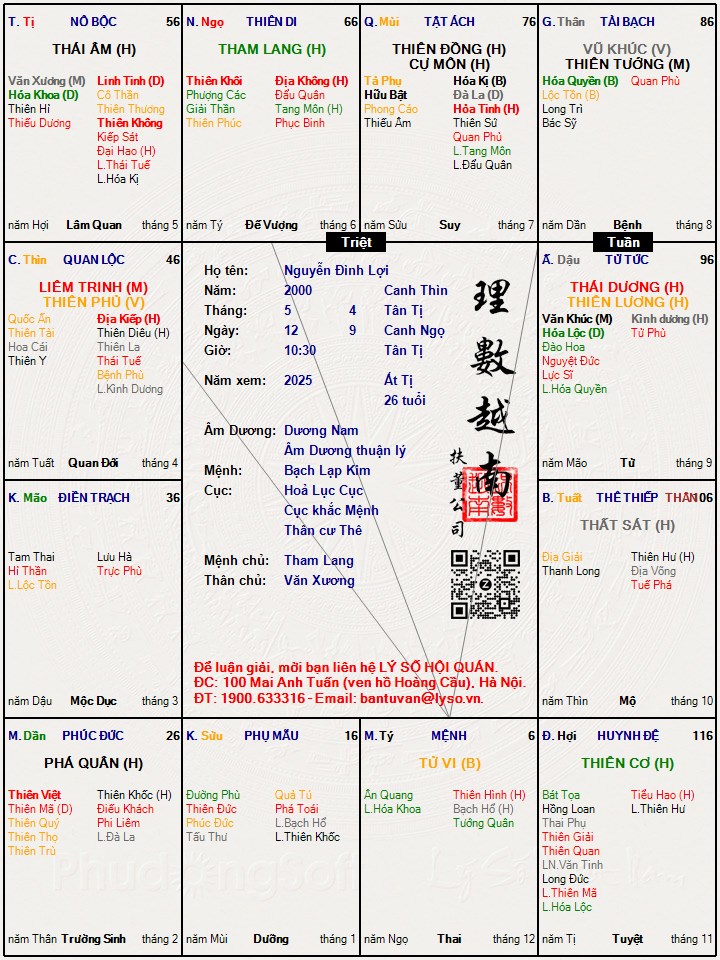 T. Tị NÔ BỘC 56
THÁI ÂM (H)
Văn Xương (M) Linh Tinh (D)
Hóa Khoa (D) Cô Thần
Thiên Hỉ Thiên Thương
Thiếu Dương Thiên Không
Kiếp Sát
Đại Hao (H)
L.Thái Tuế
L.Hóa Kị
năm Hợi Lâm Quan tháng 5
N. Ngọ THIÊN DI 66
THAM LANG (H)
Thiên Khôi Địa Không (H)
Phượng Các Đẩu Quân
Giải Thần Tang Môn (H)
Thiên Phúc Phục Binh
năm Tý Đế Vượng tháng 6
Q. Mùi TẬT ÁCH 76
THIÊN ĐỒNG (H)
CỰ MÔN (H)
Tả Phụ Hóa Kị (B)
Hữu Bật Đà La (D)
Phong Cáo Hỏa Tinh (H)
Thiếu Âm Thiên Sứ
Quan Phủ
L.Tang Môn
L.Đẩu Quân
năm Sửu Suy tháng 7
G. Thân TÀI BẠCH 86
VŨ KHÚC (V)
THIÊN TƯỚNG (M)
Hóa Quyền (B) Quan Phù
Lộc Tồn (B)
Long Trì
Bác Sỹ
năm Dần Bệnh tháng 8
Triệt
Tuần
C. Thìn QUAN LỘC 46
LIÊM TRINH (M)
THIÊN PHỦ (V)
Quốc Ấn Địa Kiếp (H)
Thiên Tài Thiên Diêu (H)
Hoa Cái Thiên La
Thiên Y Thái Tuế
Bệnh Phù
L.Kình Dương
năm Tuất Quan Đới tháng 4
Họ tên: Nguyễn Đình Lợi
Năm: 2000 Canh Thìn
Tháng: 5 4 Tân Tị
Ngày: 12 9 Canh Ngọ
Giờ: 10:30 Tân Tị
Năm xem: 2025 Ất Tị
26 tuổi
Âm Dương: Dương Nam
Âm Dương thuận lý
Mệnh: Bạch Lạp Kim
Cục: Hoả Lục Cục
Cục khắc Mệnh
Thân cư Thê
Mệnh chủ: Tham Lang
Thân chủ: Văn Xương
理數越南
扶董公司
Để luận giải, mời bạn liên hệ LÝ SỐ HỘI QUÁN.
ĐC: 100 Mai Anh Tuấn (ven hồ Hoàng Cầu), Hà Nội.
ĐT: 1900.633316 - Email: bantuvan@lyso.vn.
Ấ. Dậu TỬ TỨC 96
THÁI DƯƠNG (H)
THIÊN LƯƠNG (H)
Văn Khúc (M) Kình dương (H)
Hóa Lộc (D) Tử Phù
Đào Hoa
Nguyệt Đức
Lực Sĩ
L.Hóa Quyền
năm Mão Tử tháng 9
K. Mão ĐIỀN TRẠCH 36
Tam Thai Lưu Hà
Hỉ Thần Trực Phù
L.Lộc Tồn
năm Dậu Mộc Dục tháng 3
B. Tuất THÊ THIẾP THÂN 106
THẤT SÁT (H)
Địa Giải Thiên Hư (H)
Thanh Long Địa Võng
Tuế Phá
năm Thìn Mộ tháng 10
M. Dần PHÚC ĐỨC 26
PHÁ QUÂN (H)
Thiên Việt Thiên Khốc (H)
Thiên Mã (D) Điếu Khách
Thiên Quý Phi Liêm
Thiên Thọ L.Đà La
Thiên Trù
năm Thân Trường Sinh tháng 2
K. Sửu PHỤ MẪU 16
Đường Phù Quả Tú
Thiên Đức Phá Toái
Phúc Đức L.Bạch Hổ
Tấu Thư L.Thiên Khốc
năm Mùi Dưỡng tháng 1
M. Tý MỆNH 6
TỬ VI (B)
Ân Quang Thiên Hình (H)
L.Hóa Khoa Bạch Hổ (H)
Tướng Quân
năm Ngọ Thai tháng 12
Đ. Hợi HUYNH ĐỆ 116
THIÊN CƠ (H)
Bát Tọa Tiểu Hao (H)
Hồng Loan L.Thiên Hư
Thai Phụ
Thiên Giải
Thiên Quan
LN.Văn Tinh
Long Đức
L.Thiên Mã
L.Hóa Lộc
năm Tị Tuyệt tháng 11